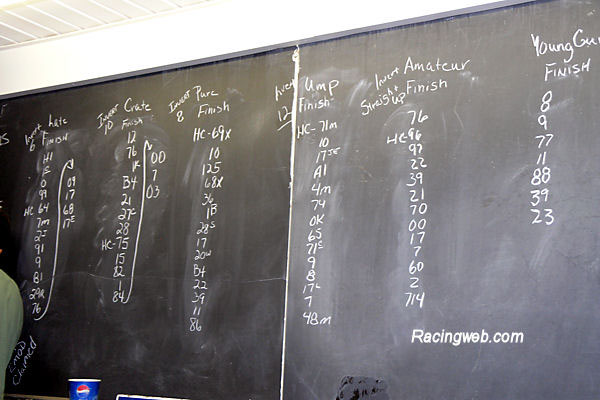 Invert Late
6 FINISH
H1
0
99
HC 64
7m
91
9
B1
29A
76
09
17
68
17E
Invert Crate
10 Finish
12
76
1K
B4
21
27C
28
HC-75
15
82
1
84
00
7
03
INVERT Pure
8 Finish
HC-69X
10
125
68X
36
1B
28S
17
20W
B4
22
39
11
86
Invert Ump
12 Finish
HC-71m
10
17JE
A1
4m
74
OK
65
71C
9
8
17L
7
48m
Invert Amateur
Straight up Finish
76
HC-96
97
22
39
21
70
00
17
7
60
2
714
Young Gun
FINISH
8
9
77
11
88
39
23
Claimed
Racingweb.com